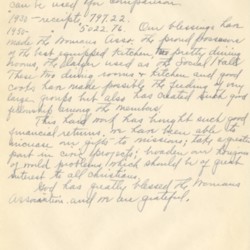 can be used for comparison.
1920 - receipts, 797.22.
1950 - " 5022.76. Our blessings have
made the Womans Assoc. the proud possessor
of the best equipped kitchen, two pretty dining
rooms, the larger used as the Social Hall.
These two dining rooms & kitchen and good
cooks have made possible the feeding of very
large groups but also has created such good
fellowship among the members.
This hard work has brought such good
financial returns, we have been able to
increase our gifts to missions; take a greater
part in civic projects; broaden our knowledge
of world problems which should be of great
interest to all christians.
God has greatly blessed the Womans
Association and we are grateful.